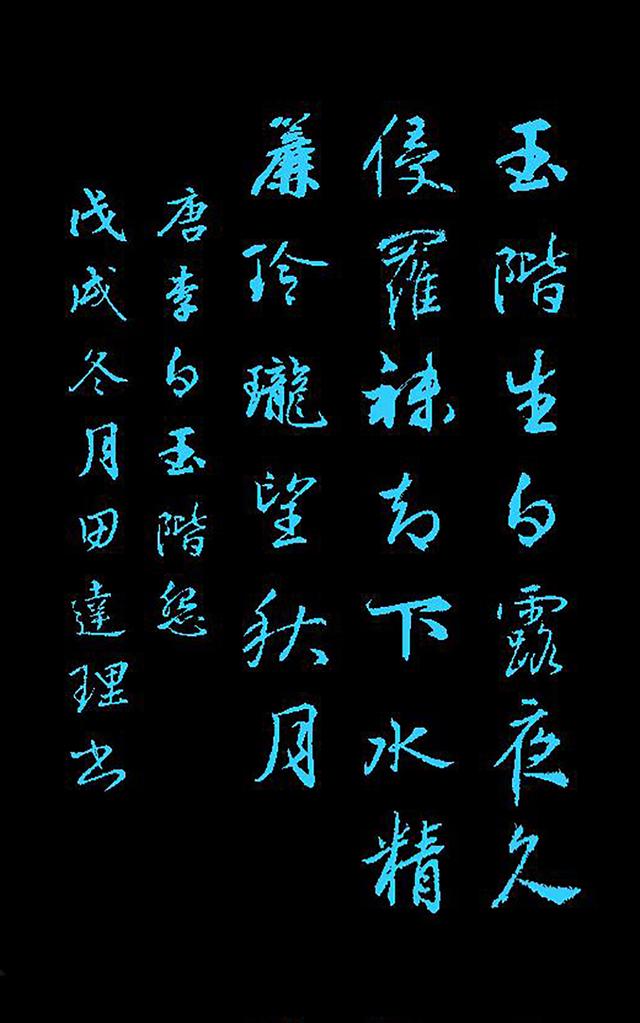 玉階生白露夜久
侵羅袜却下水精
簾玲瓏望秋月
唐李白玉階怨
戊戌冬月田達理书